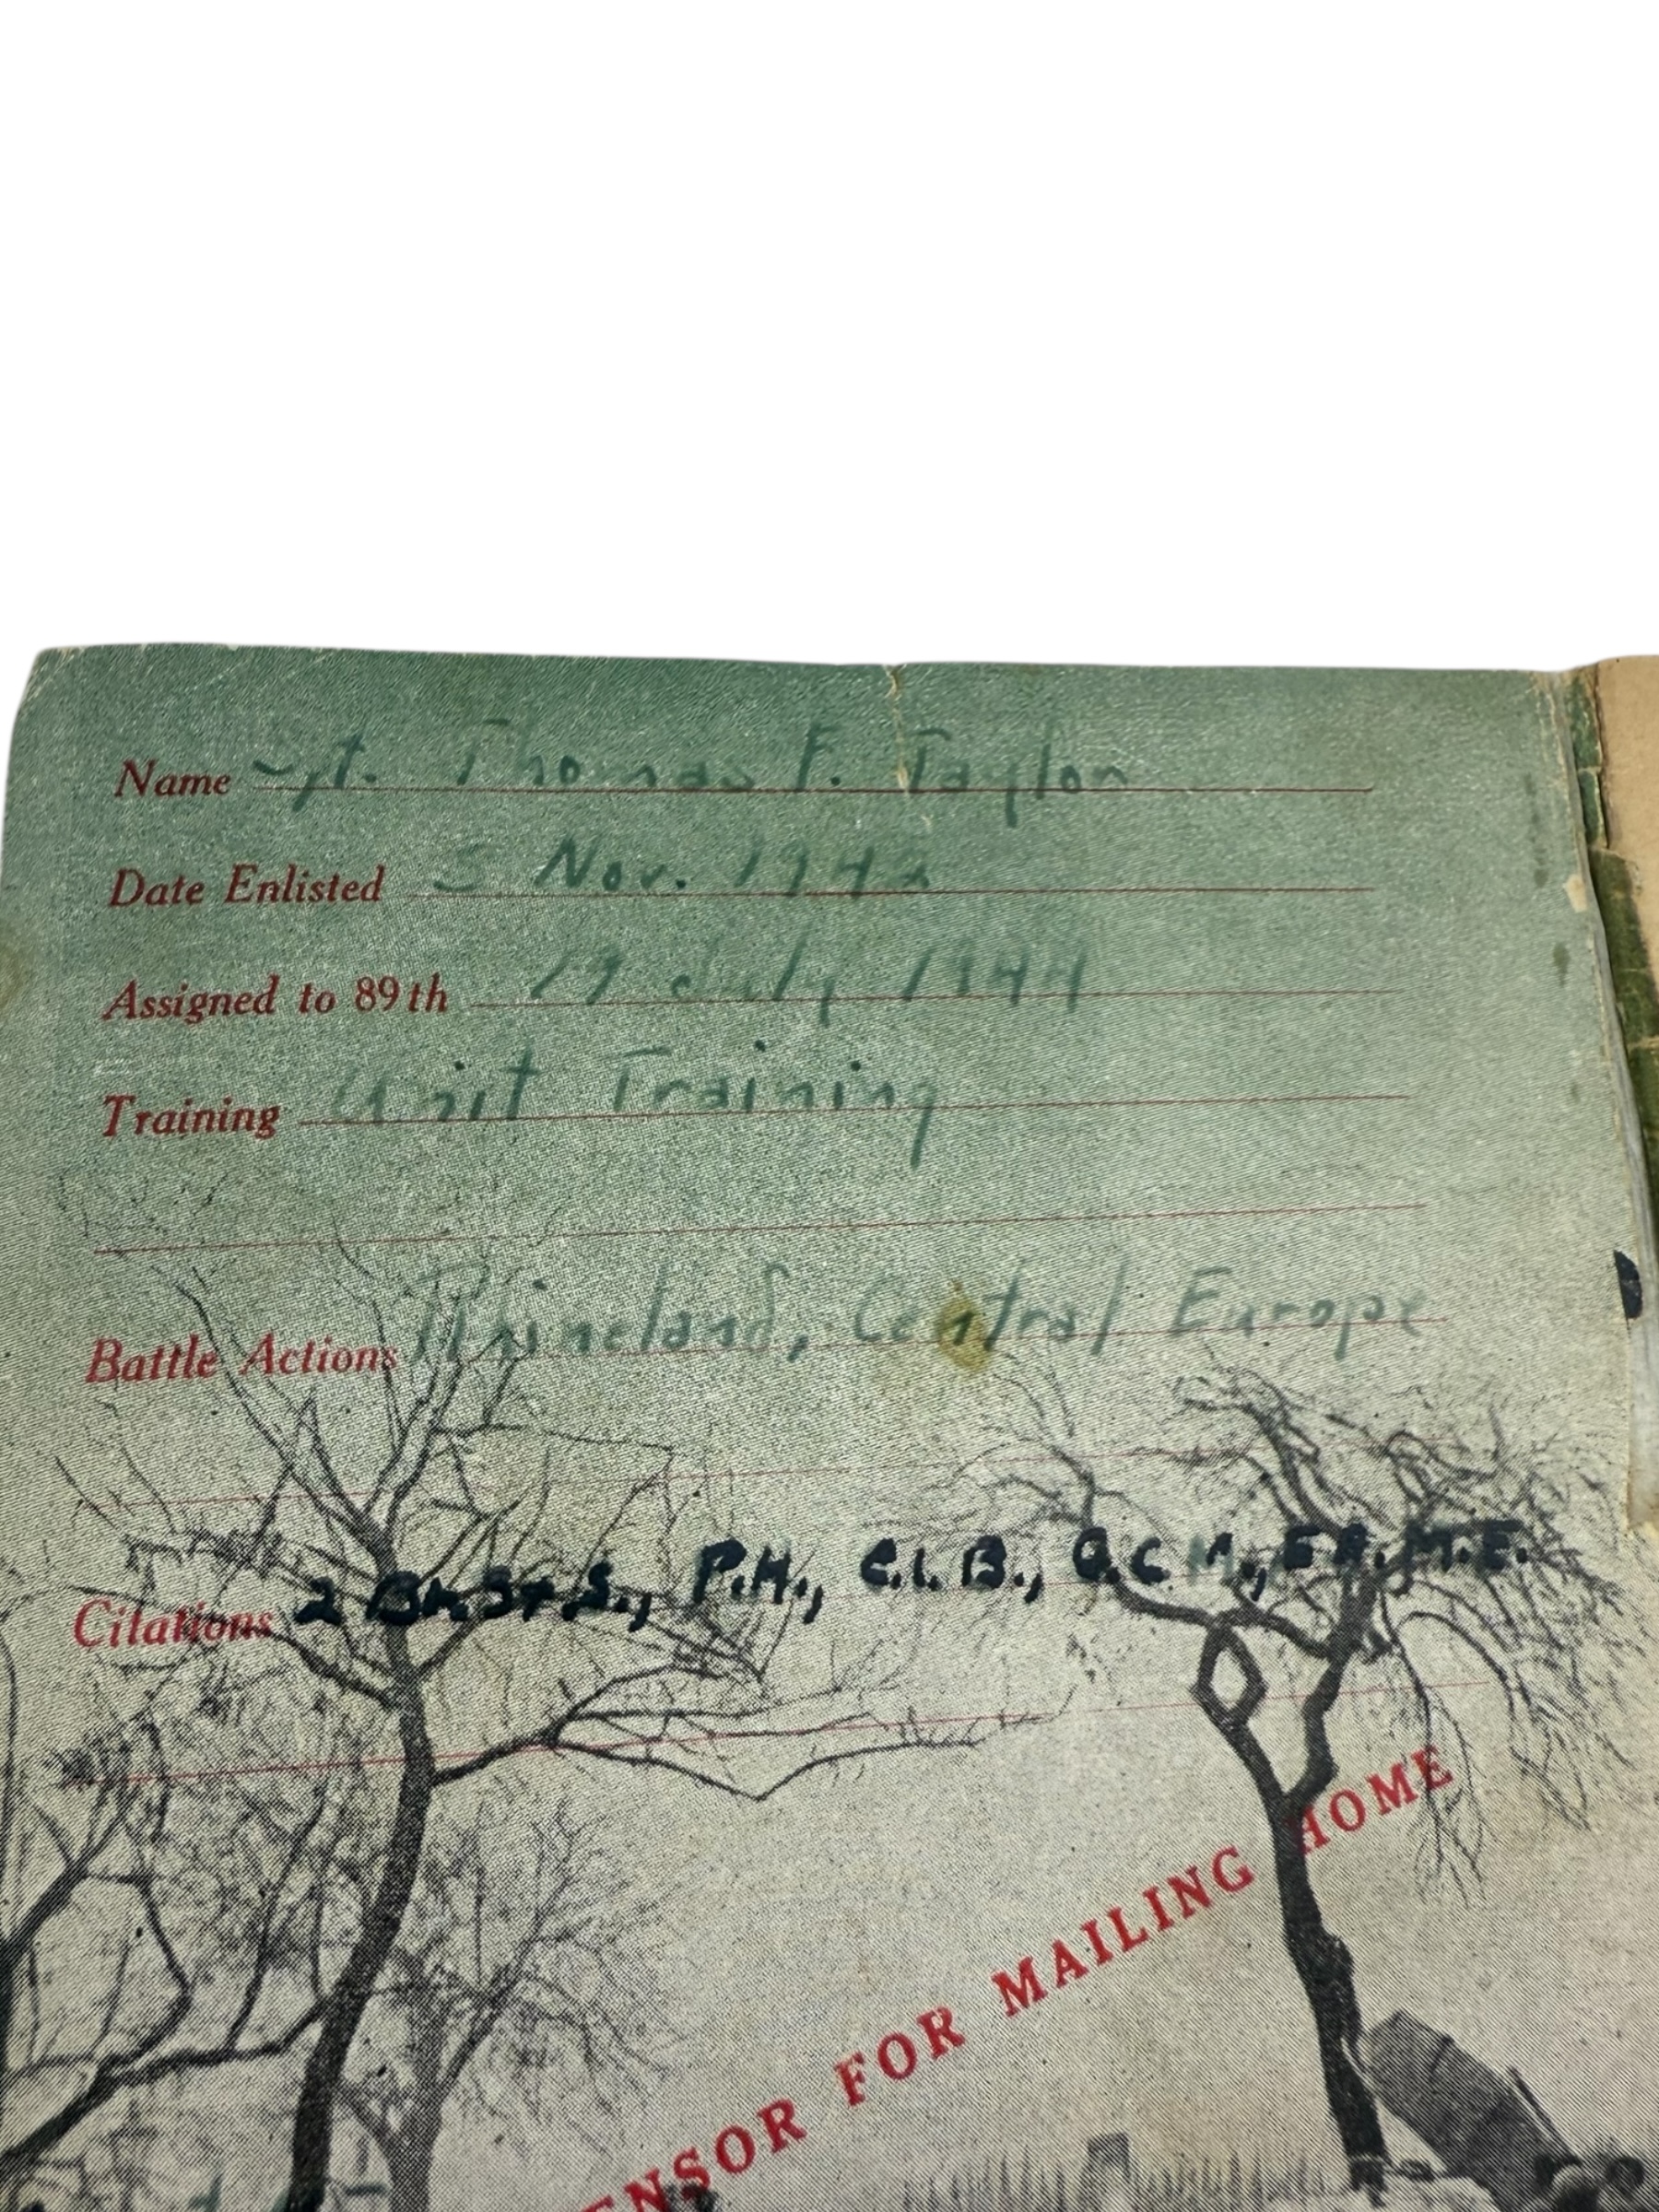 Name Sgt. Thomas F. Taylor
Date Enlisted 5 Nov. 1942
Assigned to 89th 19 July 1944
Training Unit Training
Battle Actions Rhineland, Central Europe
Citations 2 Br.St.S., P.H., C.I.B., G.C.M., E.A.M.E.
ENSOR FOR MAILING HOME